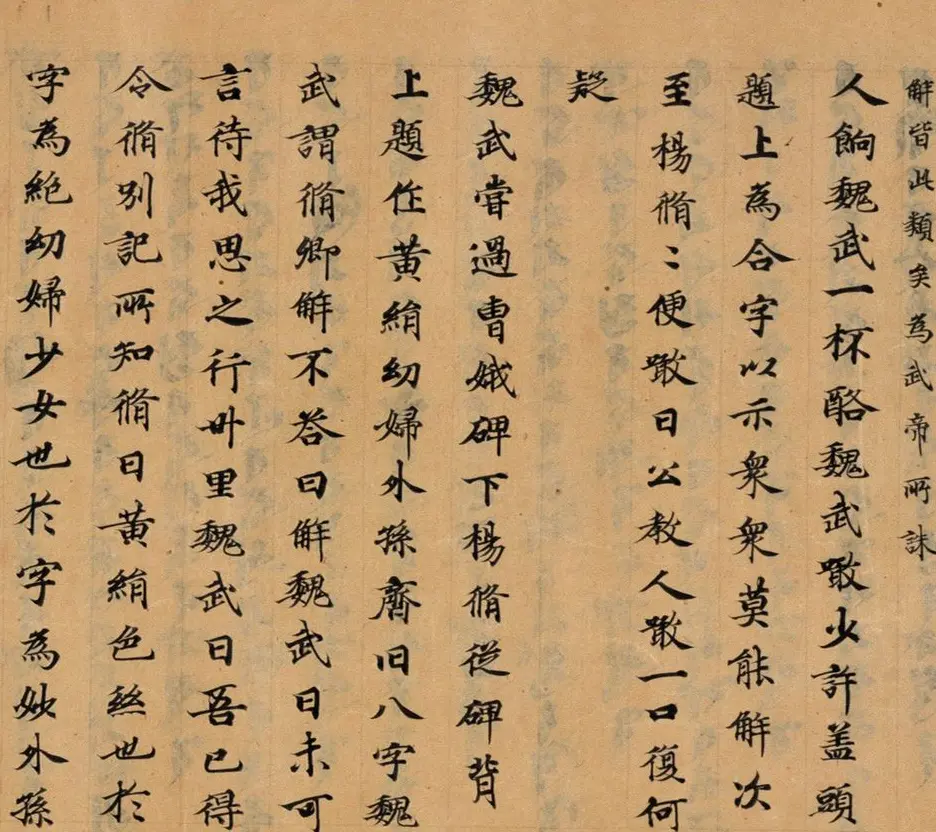 解皆此類矣為武帝所誅
人餉魏武一杯酪魏武噉少許盖頭
題上為合字以示衆衆莫能解次
至楊脩〻便噉曰公教人噉一口復何
疑
魏武甞過曹娥碑下楊脩從碑背
上題作黄絹幼婦外孫齊臼八字魏
武謂脩卿解不荅曰解魏武曰未可
言待我思之行卅里魏武曰吾已得
令脩別記所知脩曰黄絹色絲也於
字為絶幼婦少女也於字為妙外孫